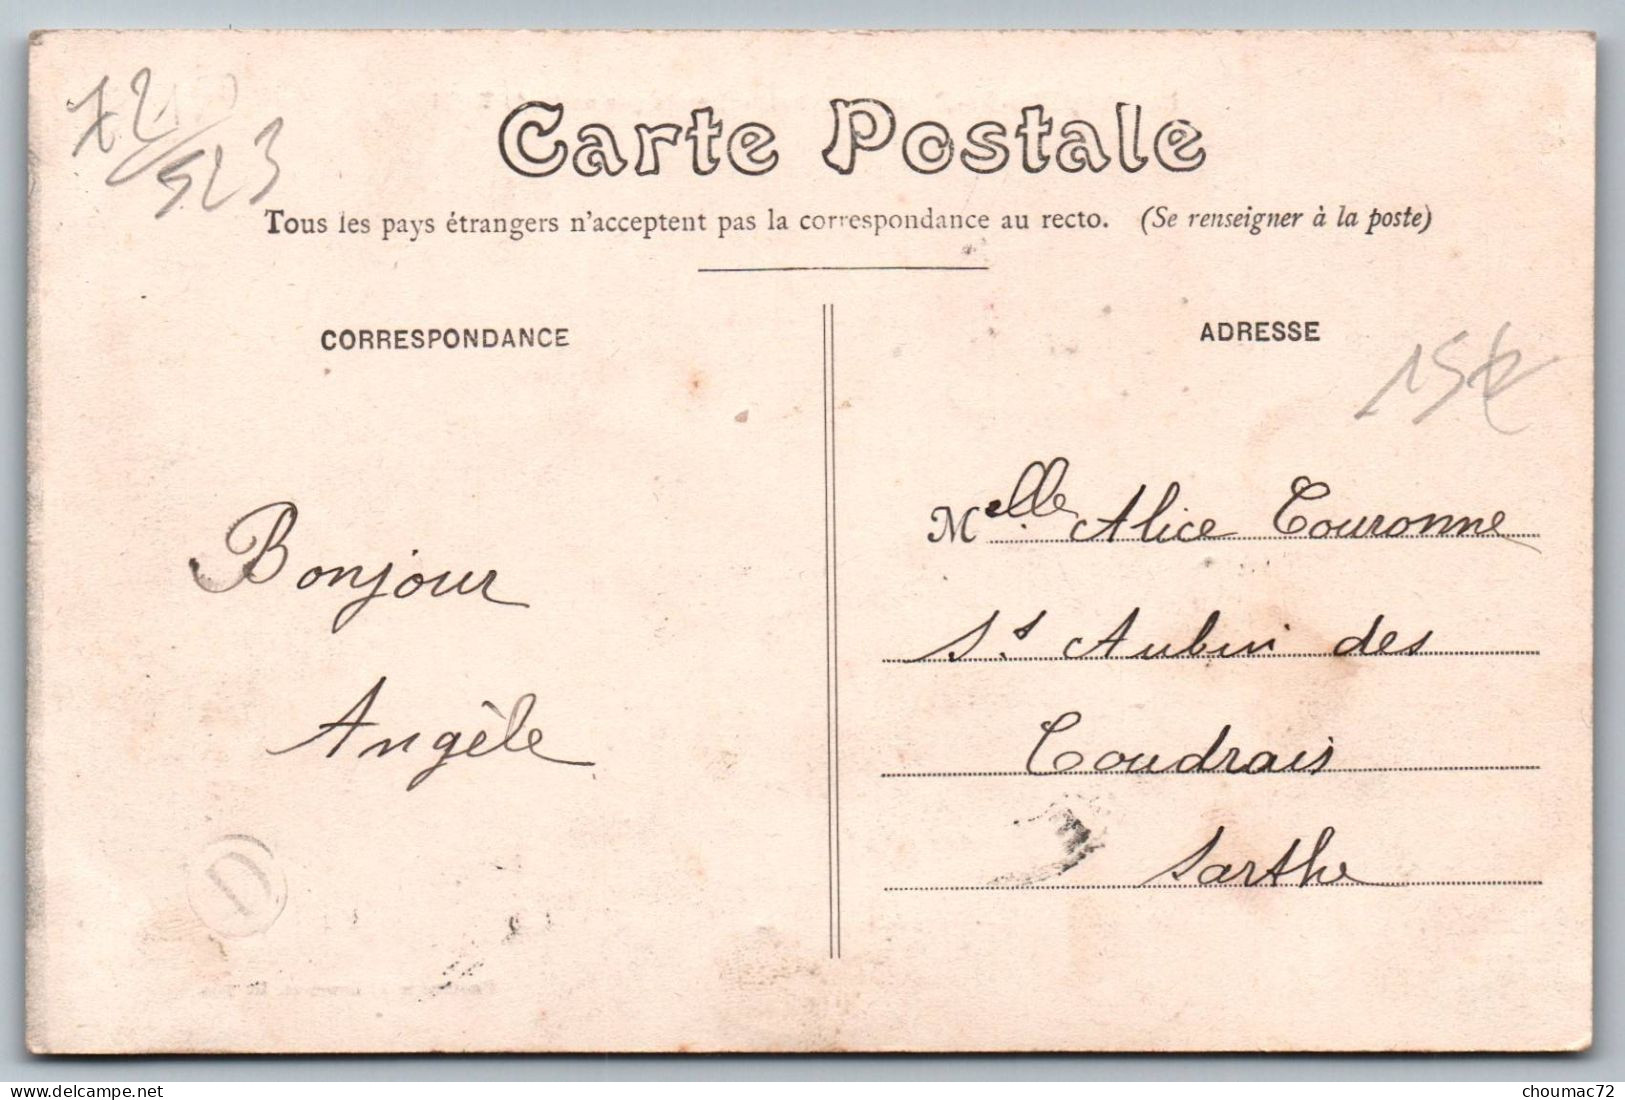 72/523
Carte Postale
Tous les pays étrangers n'acceptent pas la correspondance au recto. (Se renseigner à la poste)
CORRESPONDANCE
Bonjour
Angèle
D
ADRESSE
15€
Melle Alice Couronne
St Aubin des
Coudrais
Sarthe
www.delcampe.net
choumac72